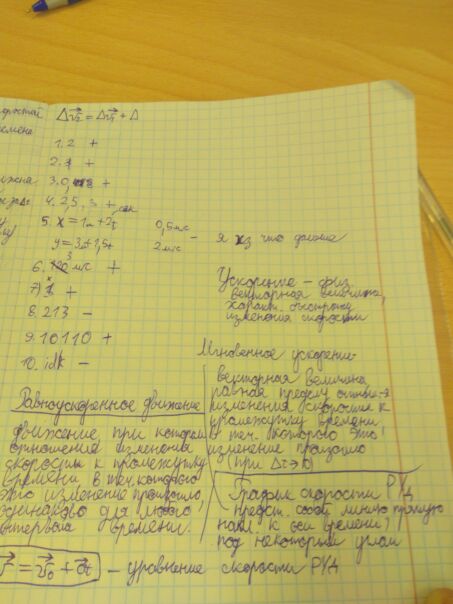 Δv⃗₂ = Δv⃗₁ + Δ
1. 2 +
2. 1 +
3. 0, +
4. 2,5, 3 + сек
5. x = 1м + 2t 0,5 м/с
y = 3м - 1,5t 2 м/с - я хз что дальше
6. м/с +
7) +
8. 213 -
9. 10110 +
10. idk -
Ускорение – физ.
векторная величина,
характ. быстроту
изменения скорости
Мгновенное ускорение -
векторная величина,
равная пределу
изменения скорости к
промежутку времени,
в теч. которого это
изменение произошло
(при Δt→0)
Равноускоренное движение
движение, при котором
отношение изменения
скорости к промежутку
времени, в теч. которого
это изменение произошло,
одинаково для любого
интервала времени.
График скорости РУД
предст. собой линию прямую
накл. к оси времени
под некоторым углом
v⃗ = v⃗₀ + a⃗t – уравнение скорости РУД